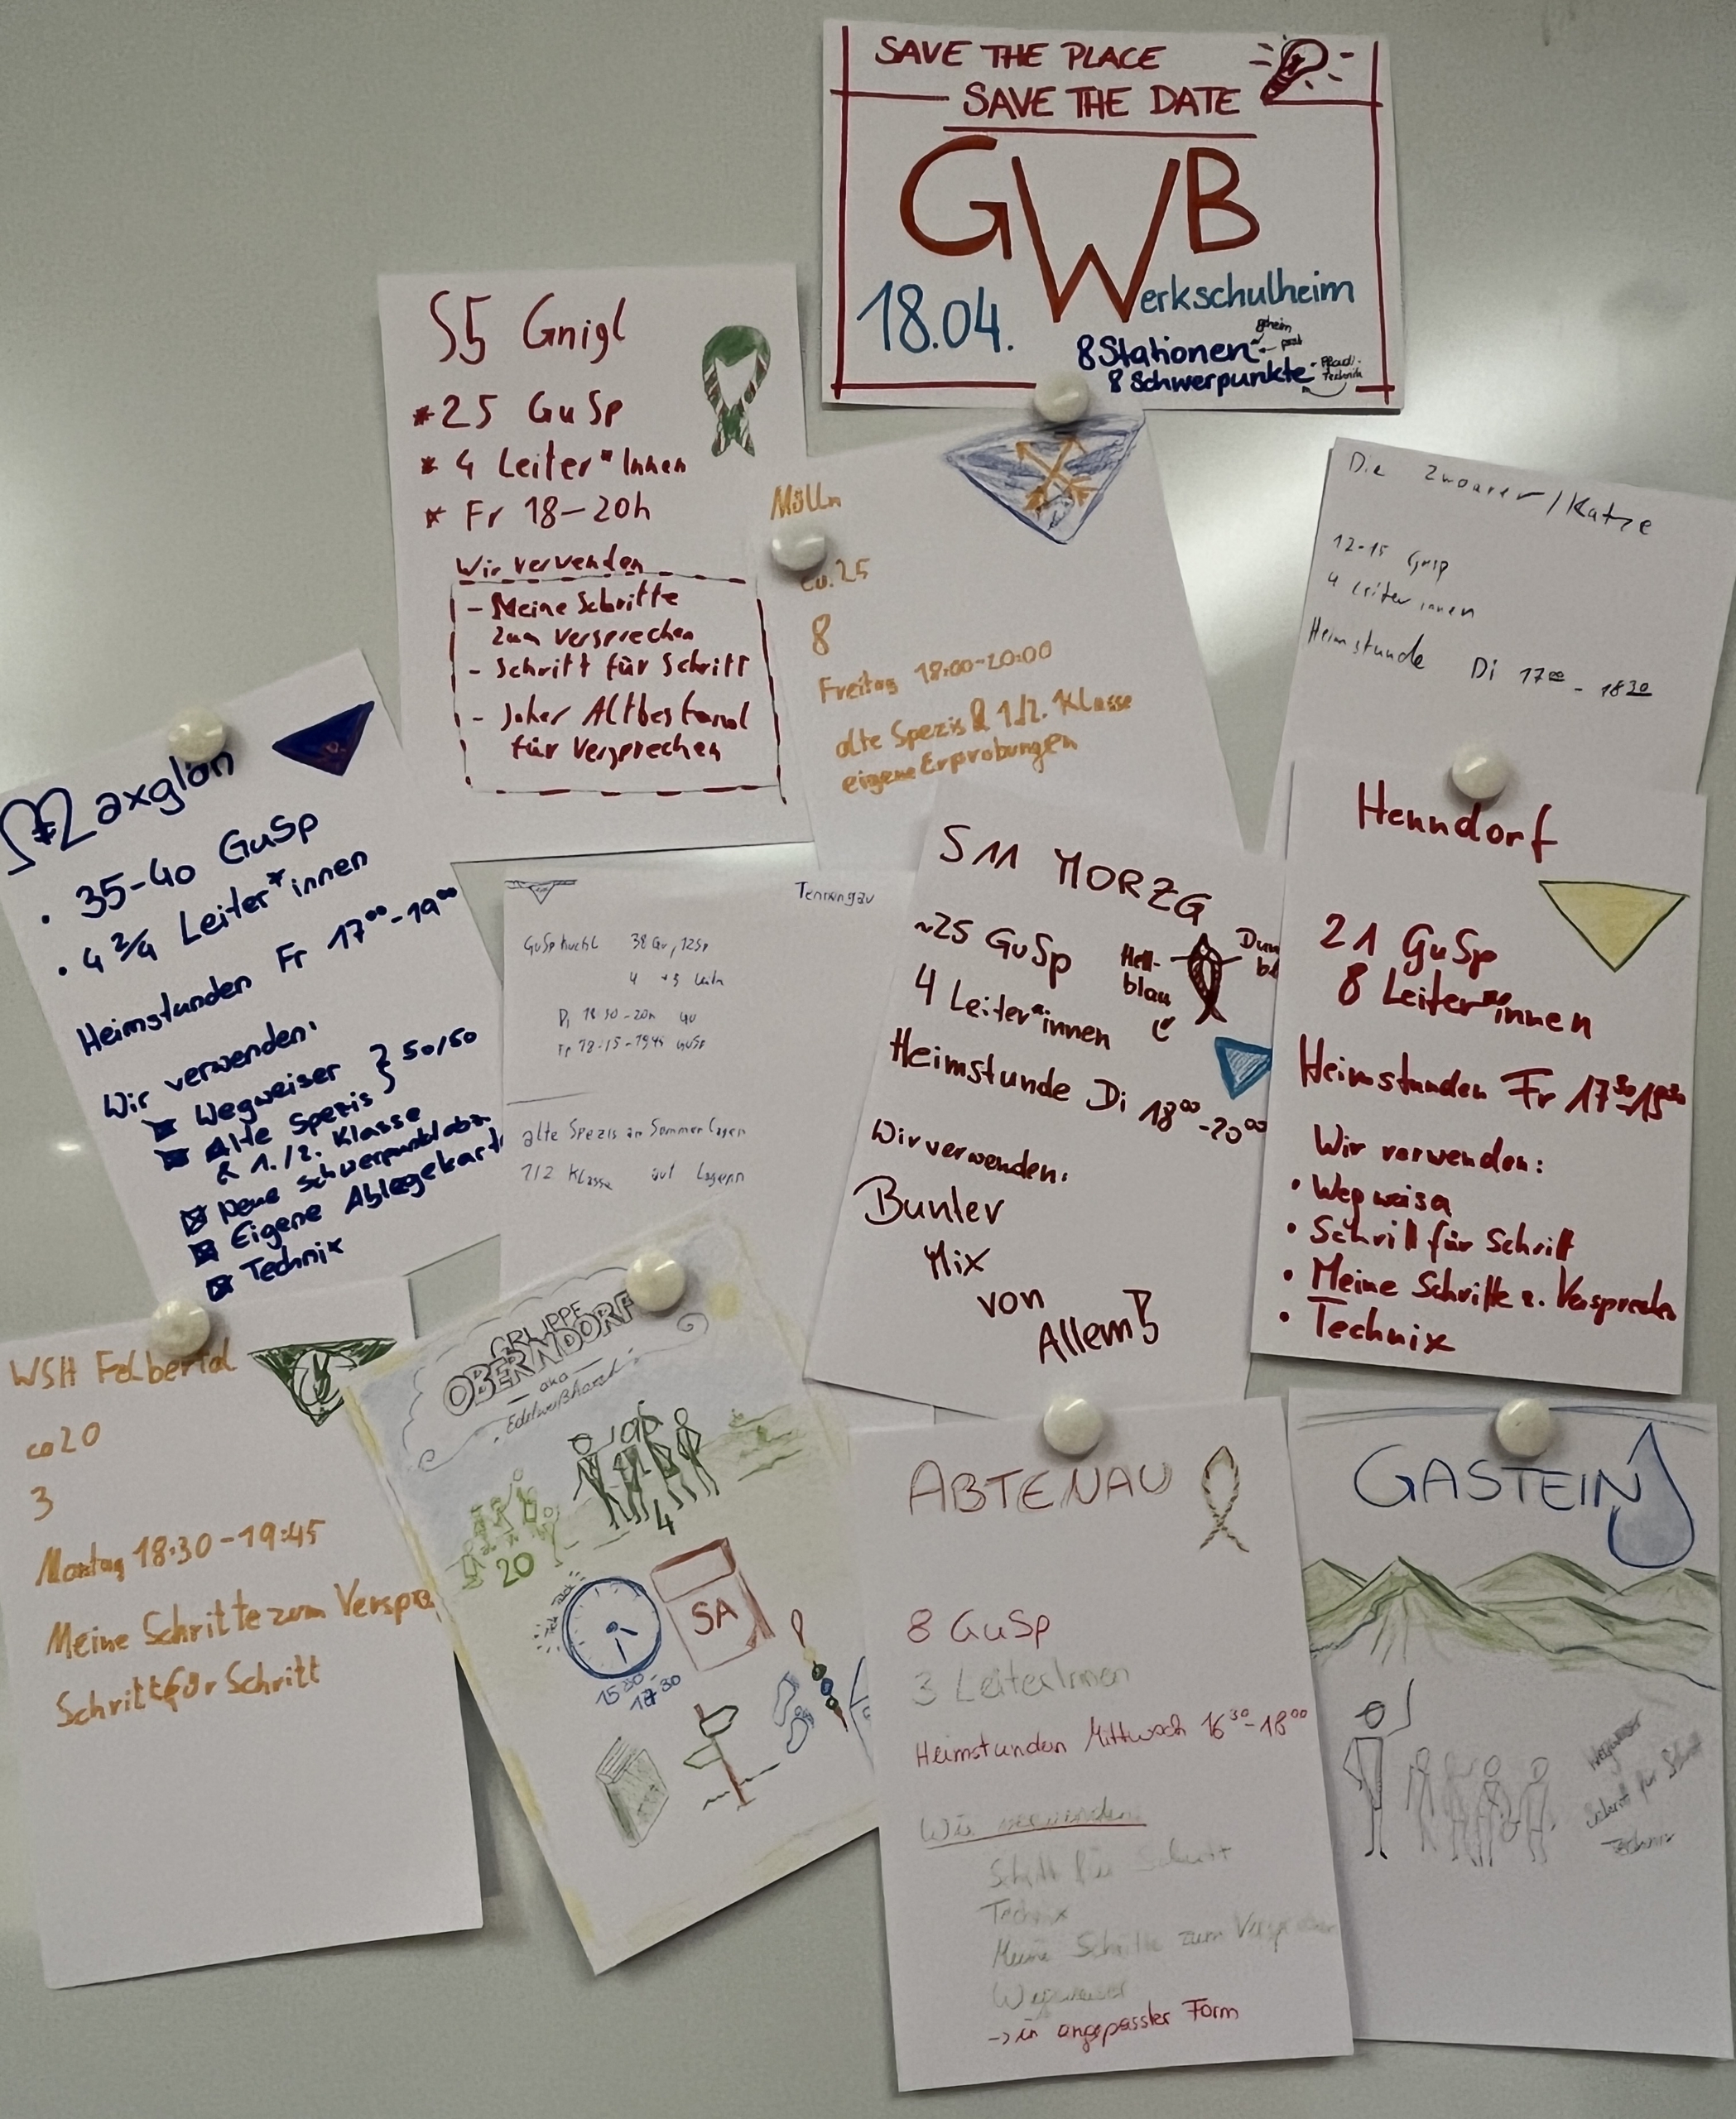 SAVE THE PLACE
SAVE THE DATE
GWB
18.04.
Werkschulheim
geheim
8 Stationen
8 Schwerpunkte
Technik
S5 Gnigl
* 25 GuSp
* 4 Leiter*Innen
* Fr 18-20h
Wir verwenden
- Meine Schritte
zum Versprechen
- Schritt für Schritt
- Joker Altbestand
für Versprechen
Mülln
ca. 25
8
Freitag 18:00-20:00
alte Spezis & 1./2. Klasse
eigene Erprobungen
Die Zwoarer/Katze
12-15 GuSp
4 Leiterinnen
Heimstunde Di 17⁰⁰ - 18³⁰
Maxglan
• 35-40 GuSp
• 4 2/4 Leiter*innen
Heimstunden Fr 17⁰⁰-19⁰⁰
Wir verwenden:
Wegweiser } 50/50
Alte Spezis
& 1./2. Klasse
Neue Schwerpunktabz.
Eigene Ablegekart
Technix
Tennengau
GuSp Kuchl 38 Gu, 12Sp
4 +3 Leiter
Di 18 30 -20h Gu
Fr 18-15-1945 GuSp
alte Spezis an Sommerlagern
1/2 Klasse auf Lagern
S11 MORZG
~25 GuSp
4 Leiter*innen
Hell-
blau
Heimstunde Di 18⁰⁰-20⁰⁰
Wir verwenden:
Bunter
Mix
von
Allem!
Henndorf
21 GuSp
8 Leiter*innen
Heimstunden Fr 17³⁰-19³⁰
Wir verwenden:
• Wegweiser
• Schritt für Schritt
• Meine Schritte z. Versprechen
• Technix
WSH Felbertal
ca 20
3
Montag 18:30-19:45
Meine Schritte zum Verspre
Schritt für Schritt
GRUPPE
OBERNDORF
aka
Edelweißhorst
4
20
SA
15 30-
17 30
ABTENAU
8 GuSp
3 LeiterInnen
Heimstunden Mittwoch 16³⁰-18⁰⁰
Wir verwenden:
Schritt für Schritt
Technix
Meine Schritte zum Versprechen
Wegweiser
-> in angepasster Form
GASTEIN
Wegweiser
Schritt für Schritt
Technix